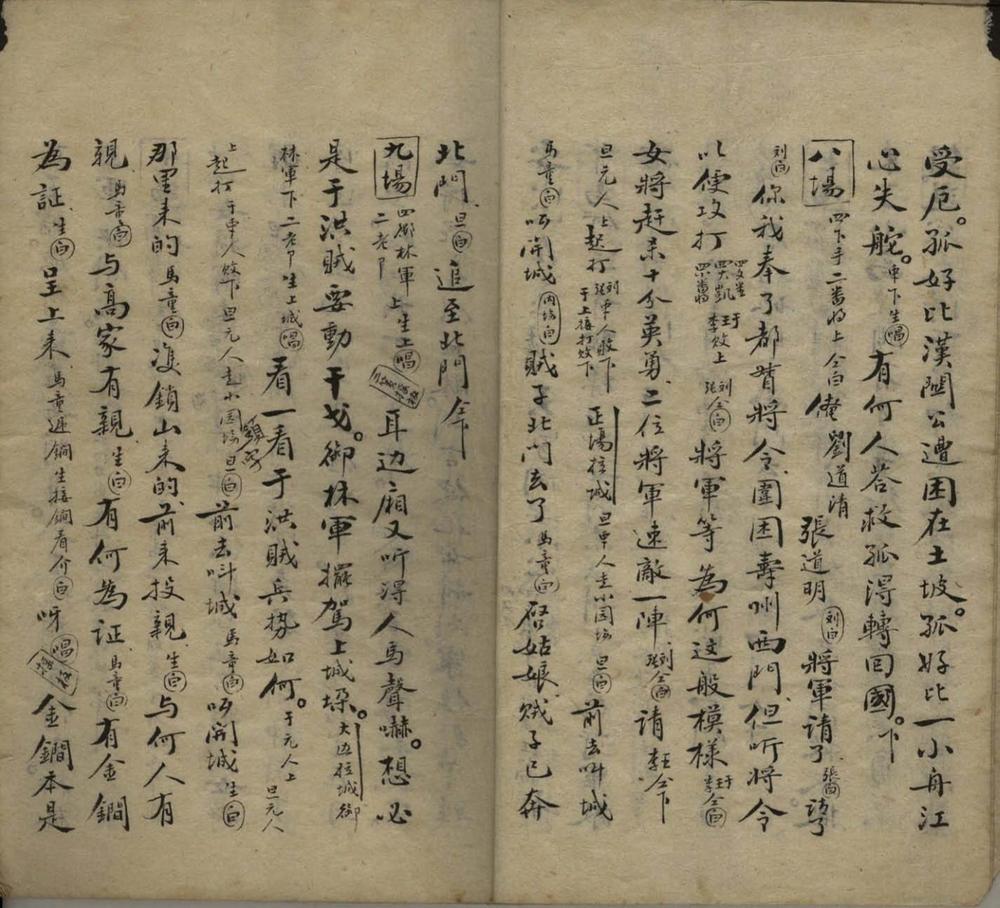 受厄。孤好比漢関公遭困在土坡。孤好比一小舟江
心失舵。中下生唱有何人答救孤得轉回國。下
八場 四下手二番将上仝白俺劉道清 張道明 刘白將軍請了張白請了
刘白你我奉了都督將令圍困壽州西門但听將令
以便攻打 李敗上刘張仝白將軍等為何這般模樣于王李仝白
女將赶杀十分英勇二位將軍速敵一陣刘張仝白請李王仝下
旦元人上起打刘張中人敗下于上接打敗下 正場拉城 旦中人走小园场旦白前去叫城
馬童白呔開城内场白賊子北门去了馬童白啓姑娘賊子已奔
北門旦白追至北門仝下
九場 四御林軍二老卩上生上唱耳边廂又听得人馬聲嚇。想必
是于洪賊要動干戈。御林軍擺駕上城垜。大边拉城御
林軍下二老卩生上城唱看一看于洪賊兵势如何。于元人上旦元人
上起打于中人敗下旦元人走小园场旦白前去叫城馬童白呔開城生白
那里来的馬童白双鎖山来的前来投親生白与何人有
親馬童白与高家有親生白有何為证馬童白有金鐧
為証生白呈上来馬童遞鐧生接鐧看介白呀唱金鐧本是